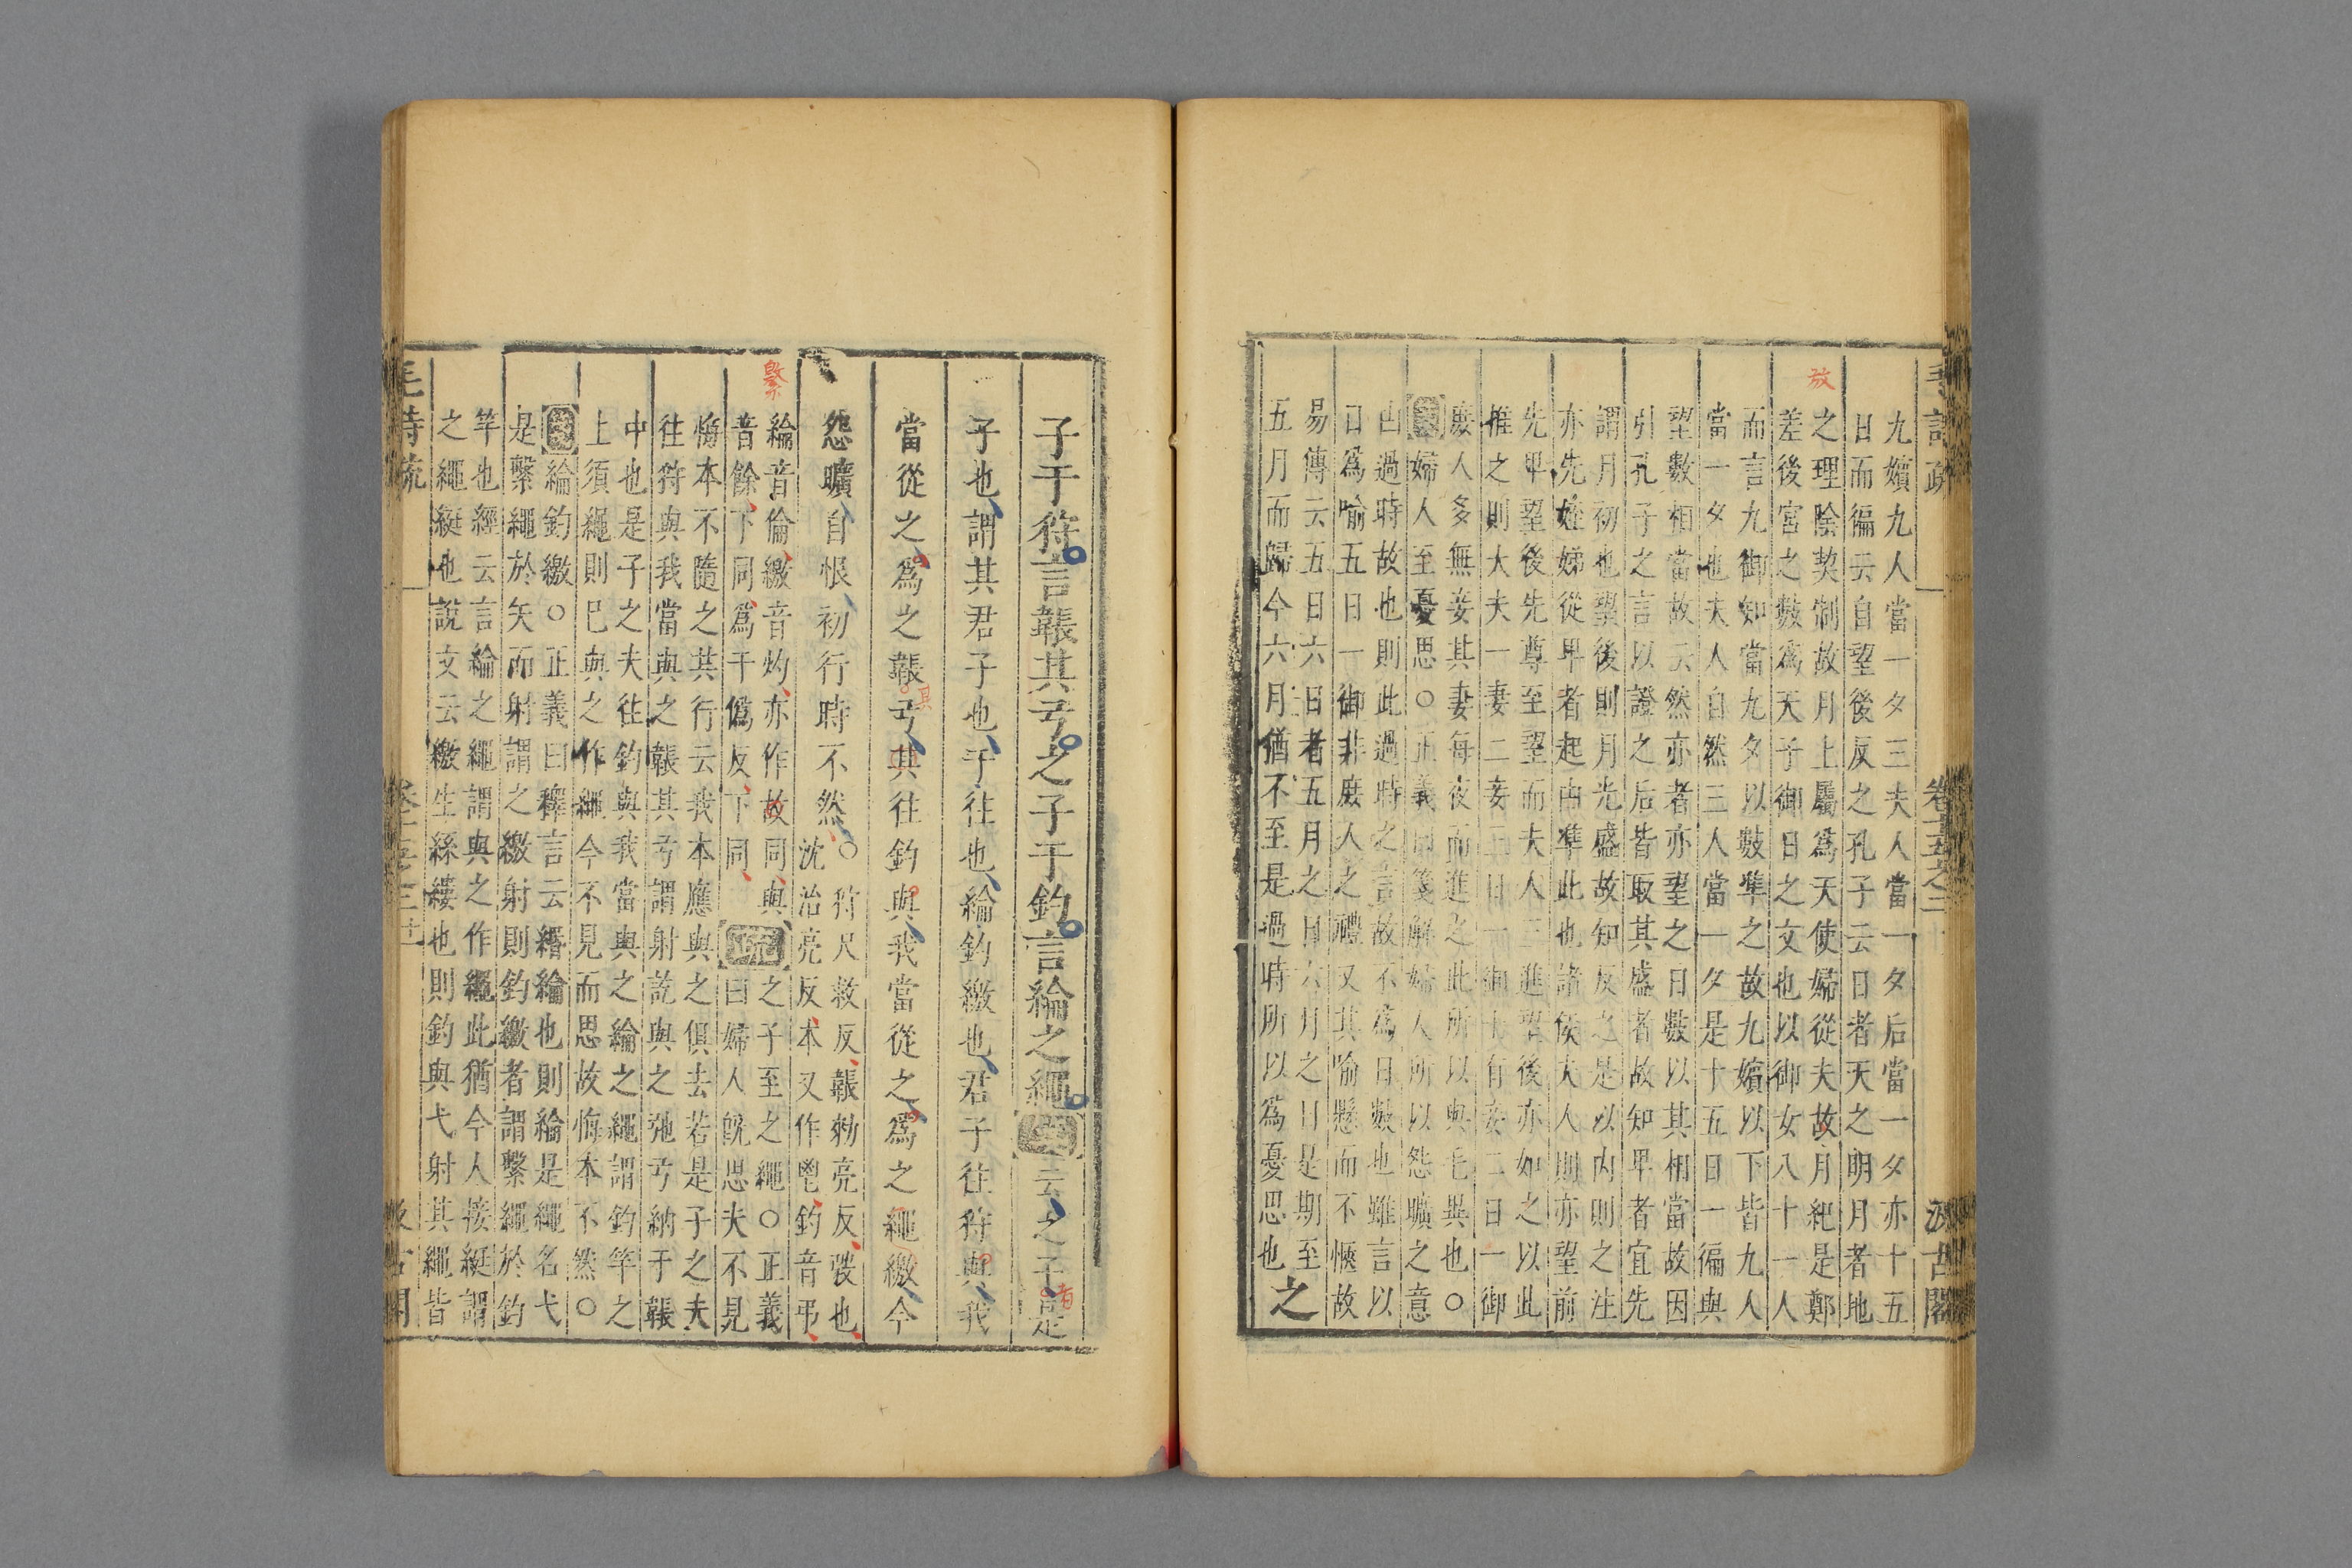 毛詩疏 卷十五之二 汲古閣
九嬪九人當一夕三夫人當一夕后當一夕亦十五
日而徧云自望後反之孔子云日者天之明月者地
之理陰契制故月上屬爲天使婦從夫故月紀是鄭
差後宮之數爲天子御日之文也以御女八十一人
而言九御知當九夕以數準之故九嬪以下皆九人
當一夕也夫人自然三人當一夕是十五日一徧與
望數相當故云然亦者亦望之日數以其相當故因
引孔子之言以證之后皆取其盛者故知卑者宜先
謂月初也望後則月光盛故知反之是以內則之注
亦先姪娣從卑者起由準此也諸侯夫人則亦望前
先卑望後先尊至望而夫人三進望後亦如之以此
推之則大夫一妻二妾三日一御士有妾二日一御
庶人多無妾其妻每夜而進之此所以與毛異也○
婦人至憂思○正義曰箋解婦人所以怨曠之意
由過時故也則此過時之言故不爲日數也雖言以
日爲喻五日一御非庶人之禮又其喻懸而不愜故
易傳云五日六日者五月之日六月之日是期至
五月而歸今六月猶不至是過時所以爲憂思也之
放
子于狩言韔其弓之子于釣言綸之繩云之子是
有
子也謂其君子也于往也綸釣繳也君子往狩與我
當從之爲之韔弓其往釣與我當從之爲之繩繳今
其
怨曠自恨初行時不然○狩尺救反韔勑亮反弢也
沈治亮反本又作鬯釣音弔
綸音倫繳音灼亦作故同與
繫
音餘下同爲于僞反下同
疏之子至之繩○正義
曰婦人旣思夫不見
悔本不隨之其行云我本應與之俱去若是子之夫
往狩與我當與之韔其弓謂射訖與之弛弓納于韔
中也是子之夫往釣與我當與之綸之繩謂釣竿之
上須繩則已與之作繩今不見而思故悔本不然○
綸釣繳○正義曰釋言云緡綸也則綸是繩名弋
是繫繩於矢而射謂之繳射則釣繳者謂繫繩於釣
竿也經云言綸之繩謂與之作繩此猶今人接綎謂
之繩綎也說文云繳生絲縷也則釣與弋射其繩皆
毛詩疏